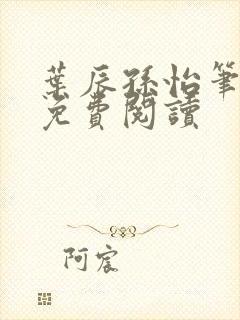 葉辰孫怡筆
免費閱讀
阿宸